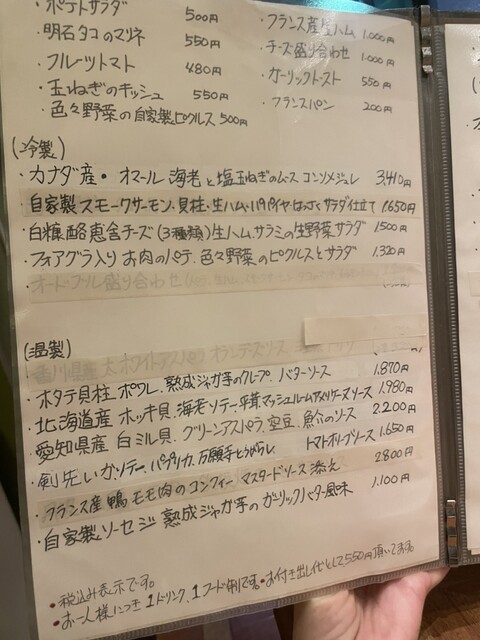 ・ポテトサラダ 500円
・明石タコのマリネ 550円
・フルーツトマト 480円
・玉ねぎのキッシュ 550円
・色々野菜の自家製ピクルス 500円
・フランス産生ハム 1,000円
・チーズ盛り合わせ 1,000円
・ガーリックトースト 550円
・フランスパン 200円
(冷製)
・カナダ産・オマール海老と塩玉ねぎのムース コンソメジュレ 3,410円
・自家製スモークサーモン・貝柱・生ハム・パパイヤ・はっさく サラダ仕立て 1,650円
・白糠酪恵舎チーズ(3種類)生ハム、サラミの生野菜サラダ 1,500円
・フォアグラ入りお肉のパテ、色々野菜のピクルスとサラダ 1,320円
・オードブル盛り合わせ
(温製)
・香川県産 太ホワイトアスパラ オランデーズソース
・ホタテ貝柱 ポワレ、熟成ジャガ芋のクレープ、バターソース 1,870円
・北海道産 ホッキ貝、海老ソテー、平茸、マッシュルーム アメリケーヌソース 1,980円
・愛知県産 白ミル貝、グリーンアスパラ、空豆、魚介のソース 2,200円
・剣先いかソテー、パプリカ、万願寺とうがらし トマトオリーブソース 1,650円
・フランス産 鴨モモ肉のコンフィー マスタードソース添え 2,800円
・自家製ソーセージ 熟成ジャガ芋のガーリックバター風味 1,100円
・税込み表示です。
・お一人様につき1ドリンク、1フード制です。・お付き出し代として550円頂いてます。